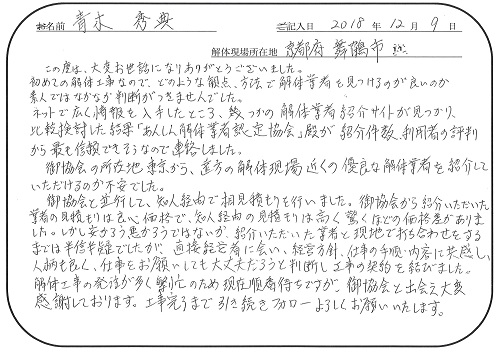 お名前 青木 秀典 ご記入日 2018年12月9日
解体現場所在地 京都府 舞鶴市
この度は、大変お世話になりありがとうございました。
初めての解体工事なので、どのような観点、方法で解体業者を見つけるのが良いのか
素人ではなかなか判断がつきませんでした。
ネットで広く情報を入手したところ、幾つかの解体業者紹介サイトが見つかり、
比較検討した結果「あんしん解体業者認定協会」殿が紹介件数、利用者の評判
から最も信頼できそうなので連絡しました。
御協会の所在地東京から、遠方の解体現場近くの優良な解体業者を紹介して
いただけるのか不安でした。
御協会と並行して、知人経由で相見積もりを行いました。御協会から紹介いただいた
業者の見積もりは良心価格で、知人経由の見積もりは高く驚くほどの価格差がありま
した。しかし安かろう悪かろうではないが、紹介いただいた業者と現地で打ち合わせをする
までは半信半疑でしたが、直接経営者に会い、経営方針、仕事の手順・内容に共感し、
人柄も良く、仕事をお願いしても大丈夫だろうと判断し工事の契約を結びました。
解体工事の発注が多く繁忙のため現在順番待ちですが、御協会と出会え大変
感謝しております。工事完了まで引き続きフォローよろしくお願いいたします。